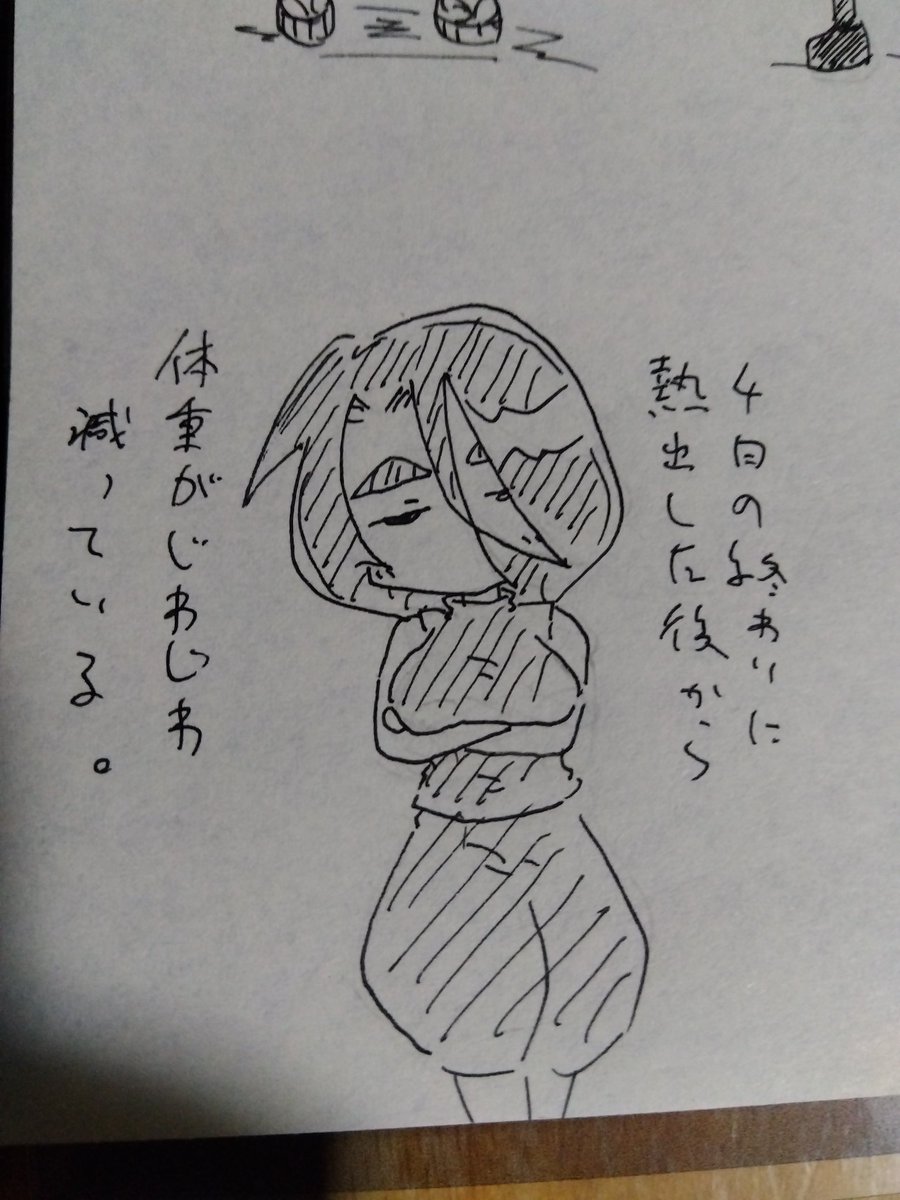 4月の終わりに
熱出した後から
体重がじわじわ
減っている。